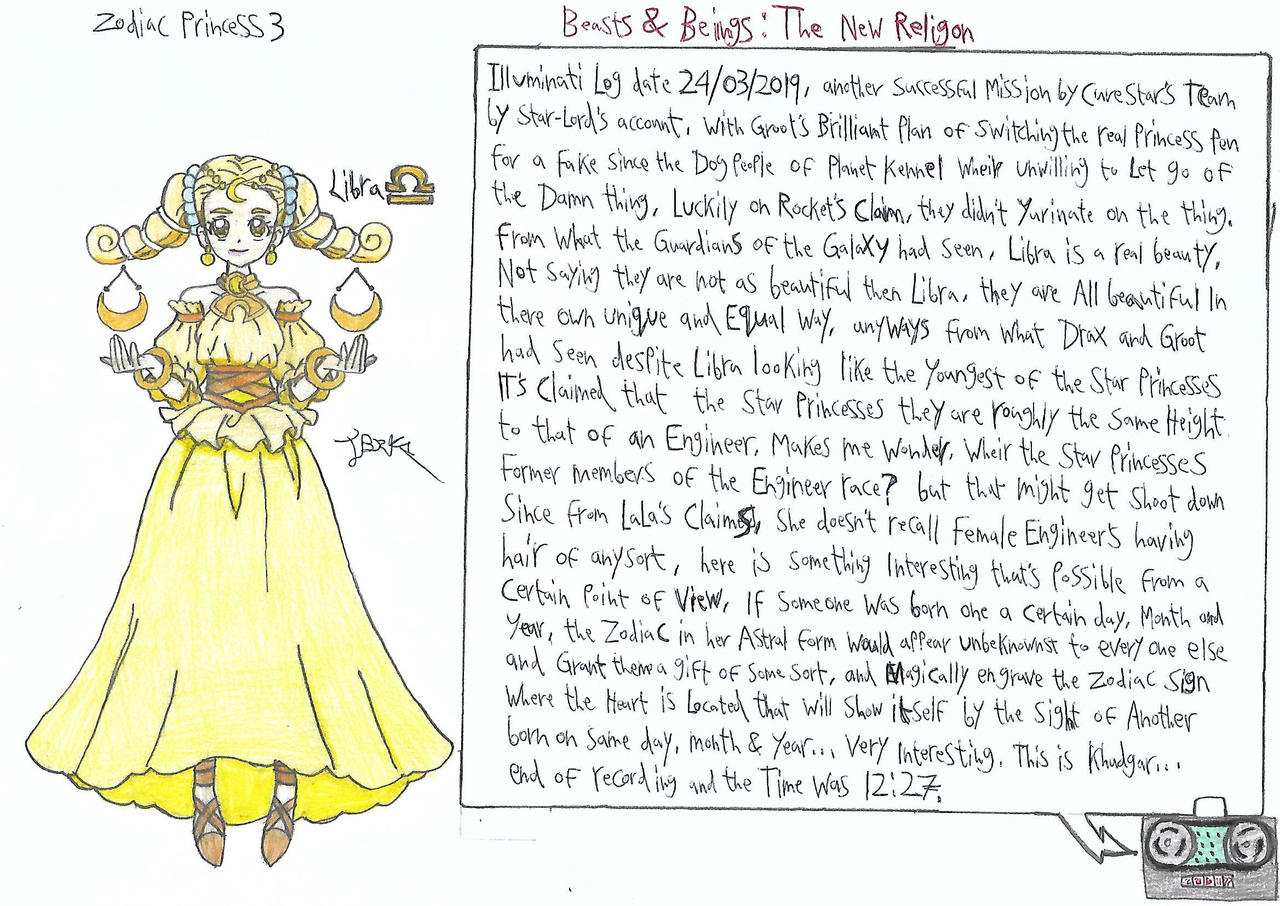 Zodiac Princess 3
Beasts & Beiings: The New Religon
Libra
Illuminati Log date 24/03/2019, another Successful Mission by CureStar's Team
by Star-Lord's account, With Groot's Brilliant Plan of Switching the real Princess Pen
for a Fake Since the Dog People of Planet Kennel Wheir unwilling to Let go of
the Damn thing, Luckily on Rocket's Claim, they didn't Yurinate on the thing.
From What the Guardians of the Galaxy had Seen, Libra is a real beauty,
Not Saying they are not as beautiful then Libra, they are All beautiful In
there own unique and Equal Way, anyways from What Drax and Groot
had Seen despite Libra looking like the Youngest of the Star Princesses
It's Claimed that the Star Princesses they are roughly the Same Height
to that of an Engineer, Makes me Wonder, Wheir the Star Princesses
Former members of the Engineer race? but that might get Shoot down
Since from LaLa's Claims, She doesn't recall Female Engineers having
hair of anysort, here is Something Interesting that's Possible From a
Certain Point of View, If Someone Was born one a Certain day, Month and
Year, the Zodiac in her Astral form Would appear unbeknownst to every one else
and Grant them a gift of Some Sort, and Magically engrave the Zodiac Sign
Where the Heart is Located that Will Show itself by the Sight of Another
born on Same day, month & Year... Very Interesting. This is Khudgar...
end of recording and the Time Was 12:27.